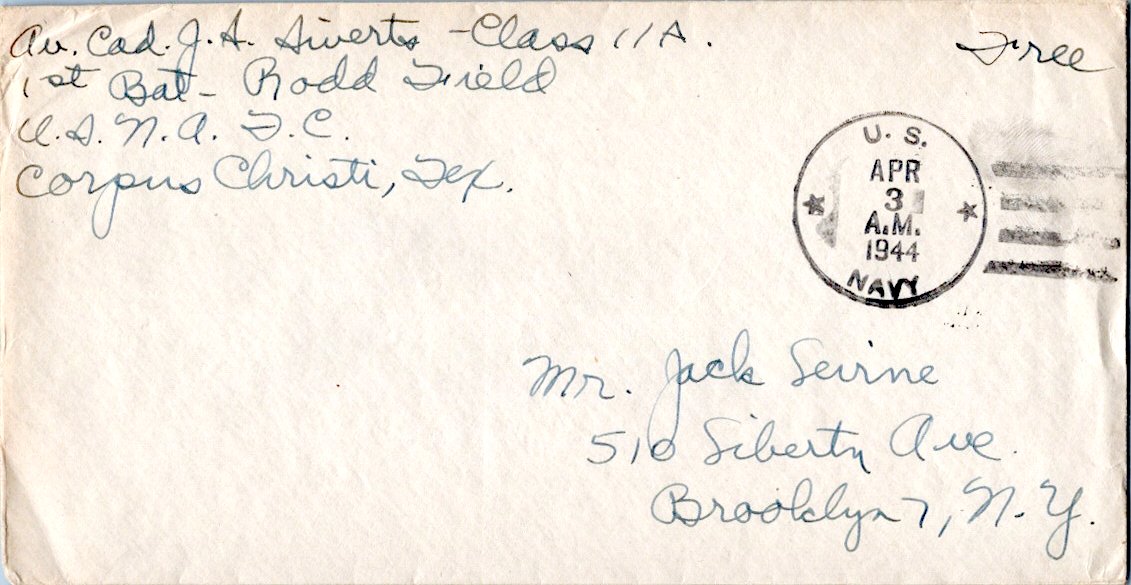 Av. Cad. J. A. Siverts - Class 11A.
1st Bat - Rodd Field
U. S. N. A. T. C.
Corpus Christi, Tex.
Free
U. S.
APR
3
A.M.
1944
NAVY
Mr. Jack Levine
510 Liberty Ave.
Brooklyn 7, N. Y.